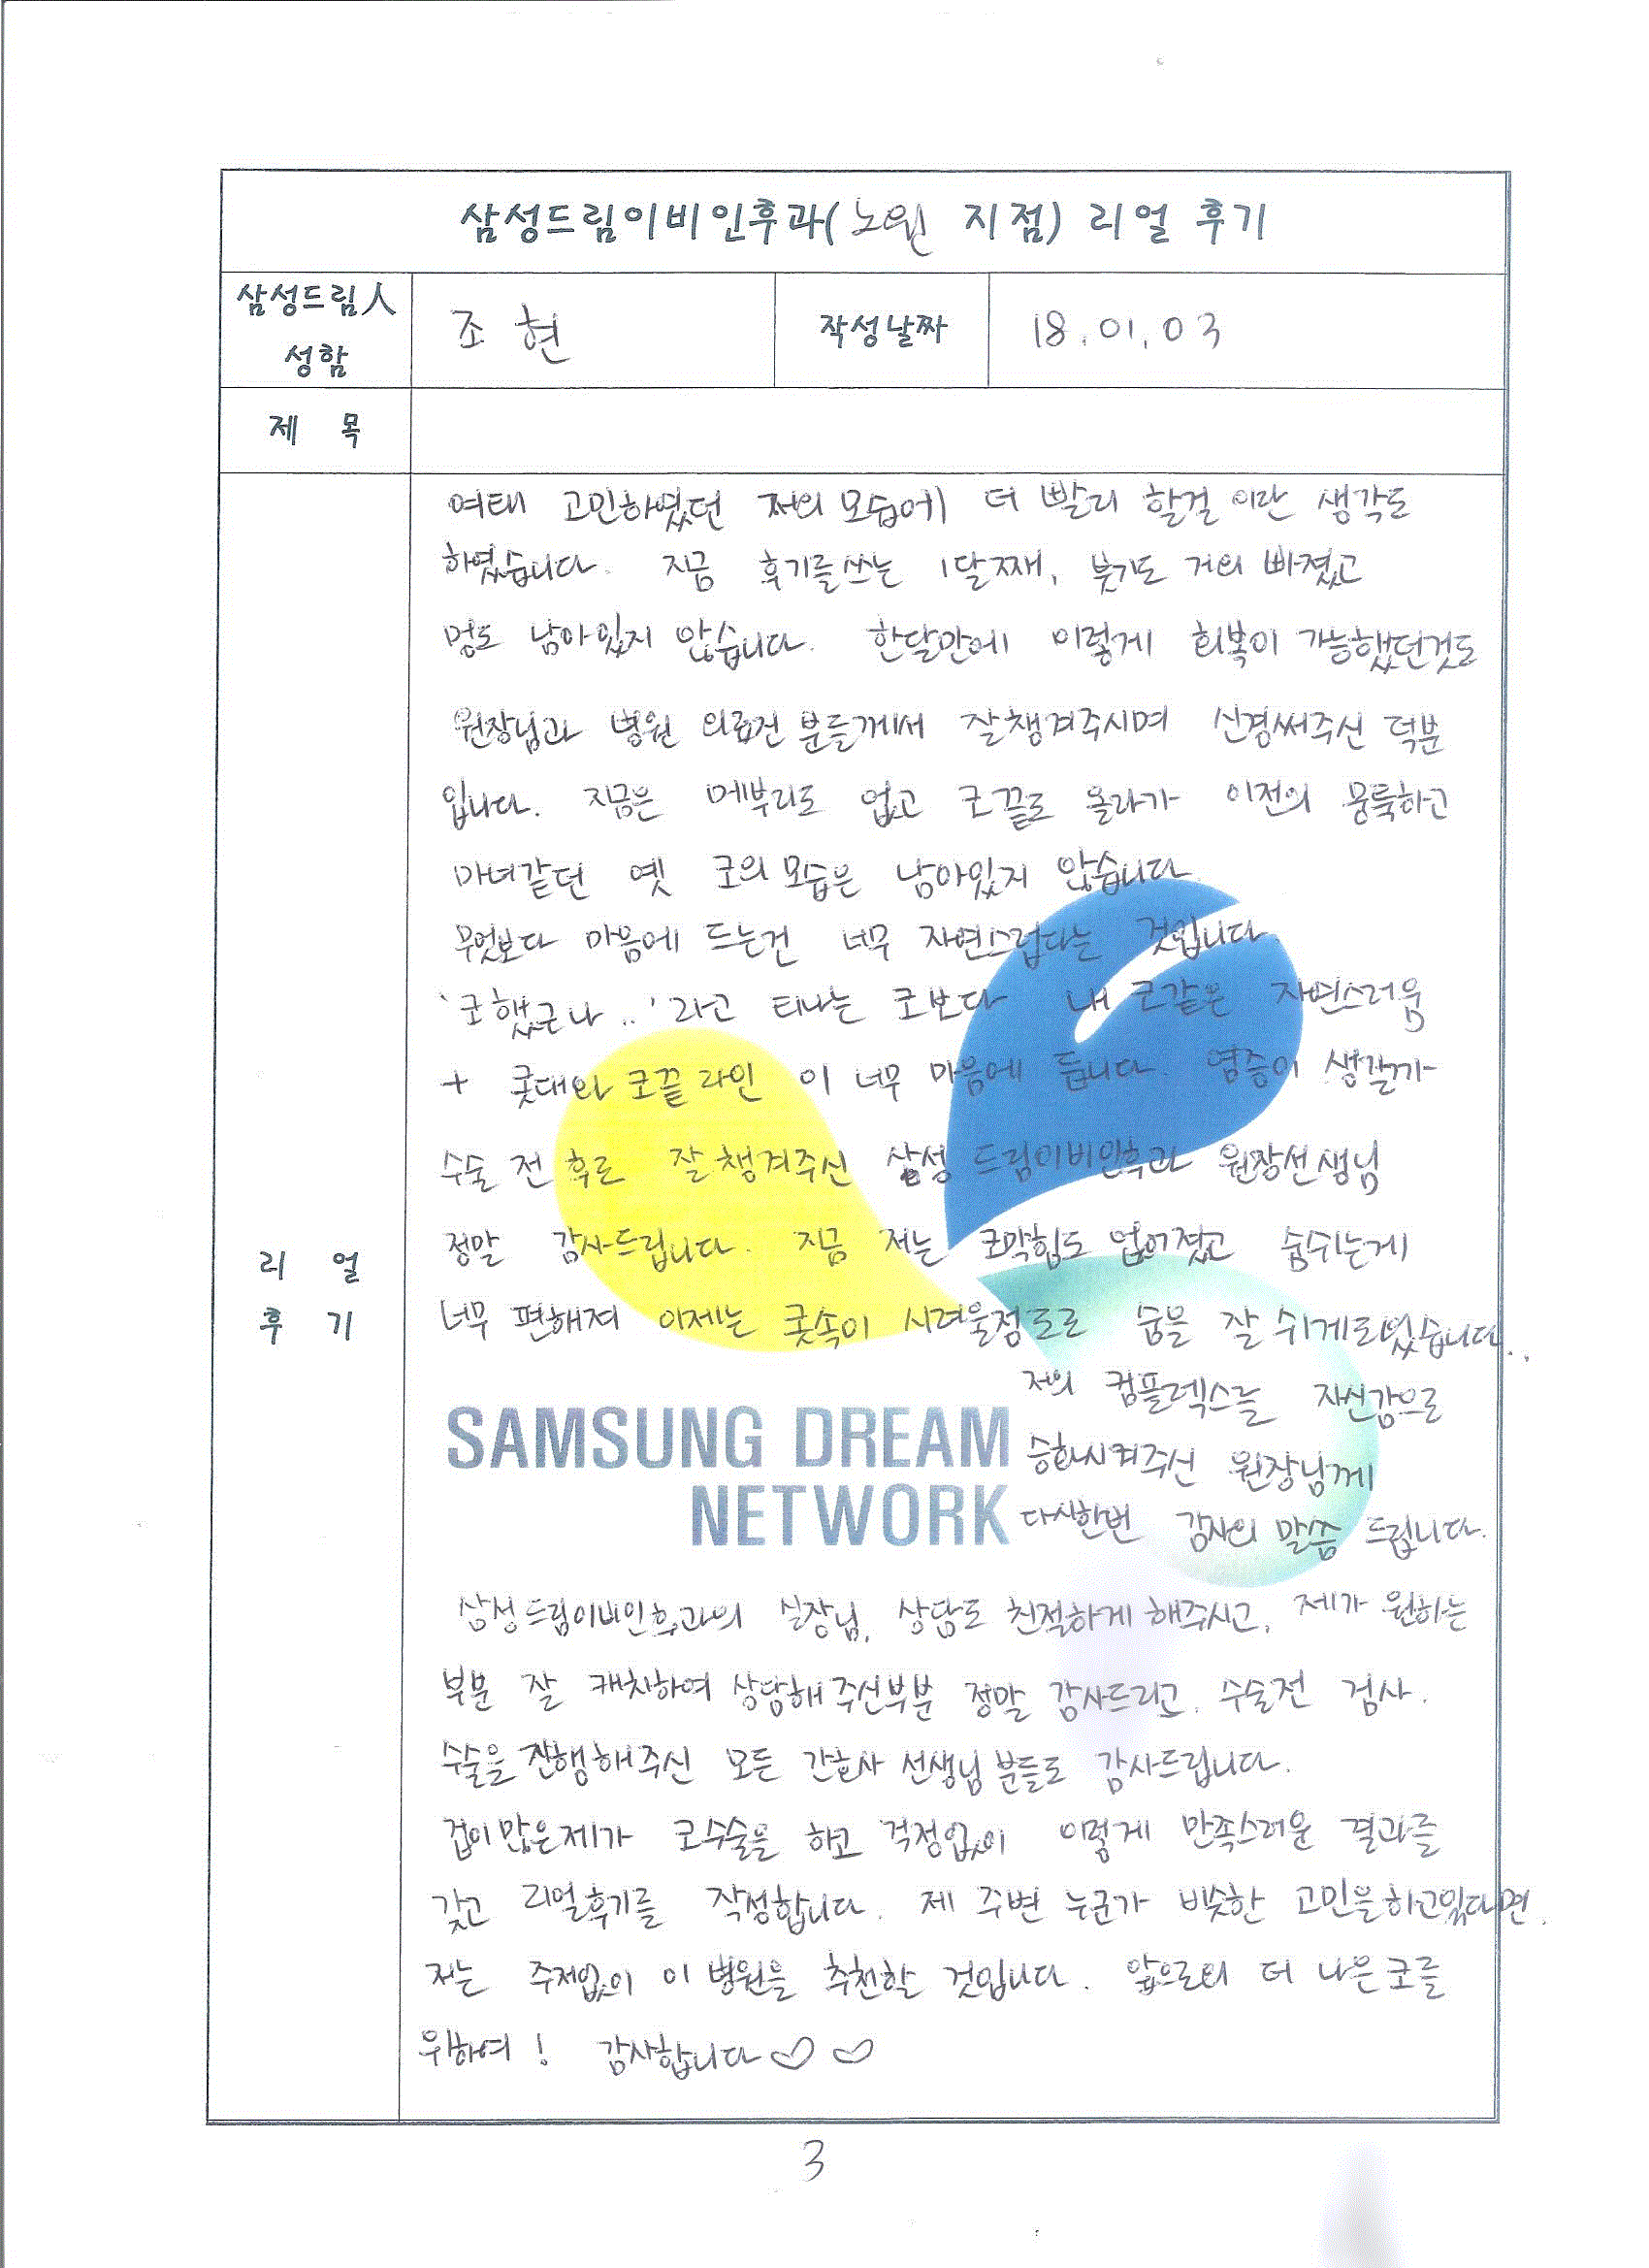 삼성드림이비인후과(노원 지점) 리얼 후기
삼성드림人
성함
조 현
작성날짜
18.01.03
제 목
리 얼
후 기
여태 고민하였던 저의 모습에 더 빨리 할걸 이란 생각도
하였습니다. 지금 후기를쓰는 1달째, 붓기도 거의 빠졌고
멍도 남아있지 않습니다. 한달만에 이렇게 회복이 가능했던것도
원장님과 병원 의료진 분들께서 잘챙겨주시며 신경써주신 덕분
입니다. 지금은 메부리도 없고 코끝도 올라가 이전의 뭉툭하고
마녀같던 옛 코의 모습은 남아있지 않습니다
무엇보다 마음에 드는건 너무 자연스럽다는 것입니다.
'코했구나..'라고 티나는 코보다 내 코같은 자연스러움
+ 콧대와 코끝 라인 이 너무 마음에 듭니다. 염증이 생길까
수술 전 후로 잘 챙겨주신 삼성 드림이비인후과 원장선생님
정말 감사드립니다. 지금 저는 코막힘도 없어졌고 숨쉬는게
너무 편해져 이제는 콧속이 시려울정도로 숨을 잘 쉬게되었습니다..
저의 컴플렉스를 자신감으로
승화시켜주신 원장님께
다시한번 감사의 말씀 드립니다.
SAMSUNG DREAM
NETWORK
삼성드림이비인후과의 실장님, 상담도 친절하게 해주시고, 제가 원하는
부분 잘 캐치하여 상담해 주신부분 정말 감사드리고, 수술전 검사.
수술을 진행해주신 모든 간호사 선생님 분들도 감사드립니다.
겁이 많은제가 코수술을 하고 걱정없이 이렇게 만족스러운 결과를
갖고 리얼후기를 작성합니다. 제 주변 누군가 비슷한 고민을하고있다면.
저는 주저없이 이 병원을 추천할 것입니다. 앞으로의 더 나은코를
위하여! 감사합니다♡♡
3